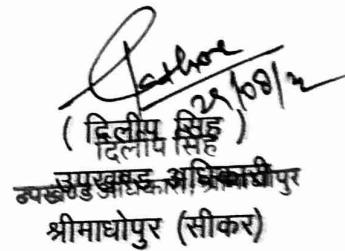 Rathore
29/08/2
( दिलीप सिंह )
दिलीप सिंह
उपखण्ड अधिकारी
उपखण्ड अधिकारी, श्रीमाधोपुर
श्रीमाधोपुर (सीकर)